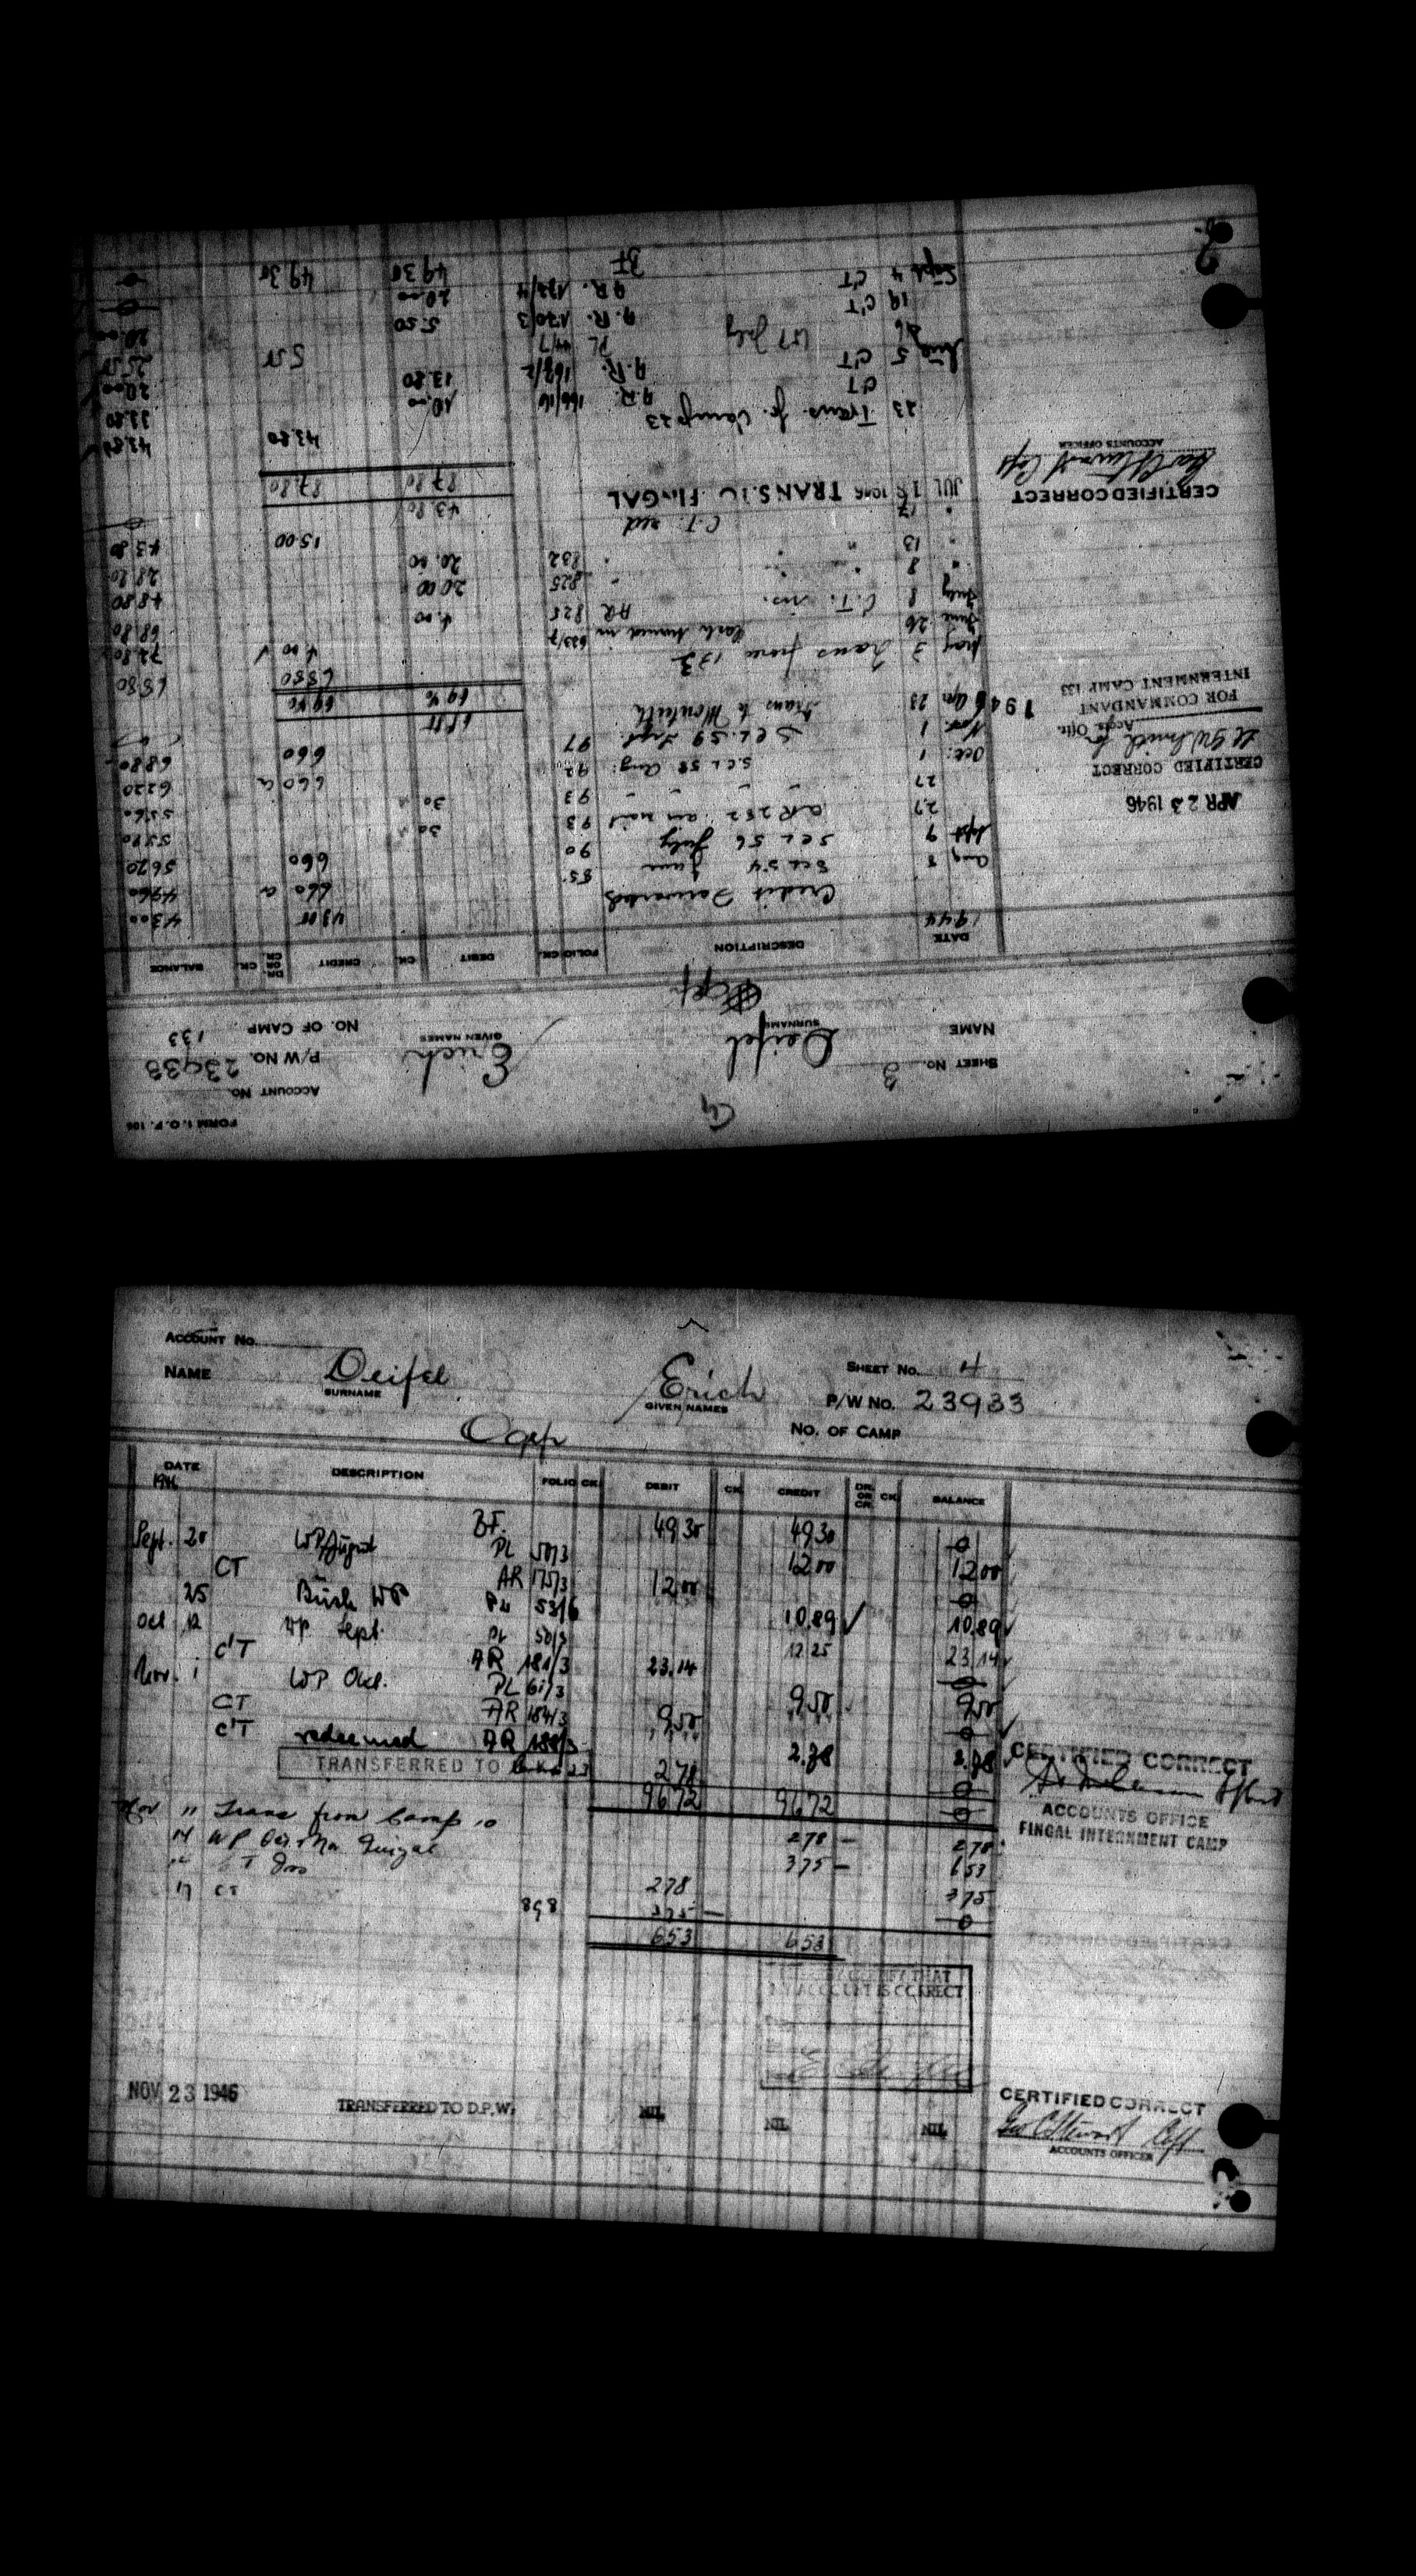 FORM I.O.P. 106
ACCOUNT NO.
SHEET NO. 3
P/W NO. 23933
NAME Deifel Erich
SURNAME GIVEN NAMES
NO. OF CAMP 133
DATE DESCRIPTION FOLIO CK. DEBIT CK. CREDIT DR. OR CR. CK. BALANCE
1944
Credit Forwarded 43 00 43 00
Aug 8 SCL 54 June 85 6 60 49 60
Sept 9 SCL 56 July 90 6 60 56 20
27 AR 252 air mail 93 30 55 90
27 " " " 93 30 55 60
Oct. 1 S.C.L 58 Aug. 92 6 60 62 20
Nov. 1 SCL.59 Sept. 97 6 60 68 80
1946 Apr 23 Trans to Monteith
69 40 69 40
May 3 Trans from 133 68 80 68 80
June 26 633/7 4 00 72 80
July 8 C.T. iss. AR 825 4.00 68 80
" 8 " " 825 20 00 48 80
" 13 " " 832 20.00 28 80
" 17 C.T. red 15 00 43 80
JUL 18 1946 TRANS. TO FINGAL 43.80
87 80 87.80
23 Trans. fr. Camp 23 43.80 43.80
CT A.R. 166/16 10.00 33.80
Aug 5 CT A.R. 169/2 13.80 20.00
PL 44/7 5.50 25.50
CT A.R. 170/3 5.50 20.00
Sept 4 CT A.R. 172/4 20.00
BF 49 30 49 30
APR 23 1946
CERTIFIED CORRECT
Accts. Offr.
FOR COMMANDANT
INTERNMENT CAMP 133
CERTIFIED CORRECT
Geo C Stewart Capt
ACCOUNTS OFFICER
ACCOUNT NO.
SHEET NO. 4
NAME Deifel Erich
SURNAME GIVEN NAMES
P/W NO. 23933
NO. OF CAMP
DATE DESCRIPTION FOLIO CK. DEBIT CK. CREDIT DR. OR CR. CK. BALANCE
1946
BF. 49 30 49 30 0
Sept. 20 WP August PL 50/3 12 00 12 00
CT AR 175/3 12 00 0
25 Bush WP 53/6 10.89 10.89
Oct 12 WP Sept. PL 58/3 12 25 23 14
CT AR 181/3 23.14 0
Nov. 1 WP Oct. PL 61/3 9.50 9.50
CT AR 184/3 9.50 0
CT redeemed AR 188/3 2.78 2.78
TRANSFERRED TO 23 2.78 0
96 72 96 72 0
Nov " Trans from Camp 10 2 78 2 78
14 WP Oct & Nov Fingal 3 75 6 53
" CT Iss 2 78 3 75
17 CT 898 3 75 0
6 53 6 53
CERTIFIED CORRECT
ACCOUNTS OFFICE
FINGAL INTERNMENT CAMP
CERTIFY THAT
ACCOUNT IS CORRECT
NOV 23 1946 TRANSFERRED TO D.P.W. NIL NIL NIL
CERTIFIED CORRECT
Geo C Stewart Capt
ACCOUNTS OFFICER